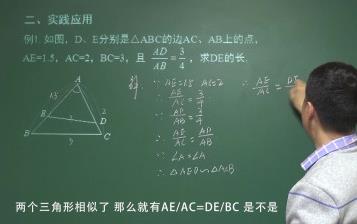 二、实践应用
例1. 如图，D、E分别是△ABC的边AC、AB上的点，
AE=1.5，AC=2，BC=3，且 AD/AB = 3/4，求DE的长.
A
1.5
2
E
D
B
3
C
解: ∵ AE=1.5 AC=2
∴ AE/AC = 3/4
∵ AD/AB = 3/4
∴ AE/AC = AD/AB
∵ ∠A=∠A
∴ △AED∽△ACB
∴ AE/AC = DE
两个三角形相似了 那么就有AE/AC=DE/BC 是不是